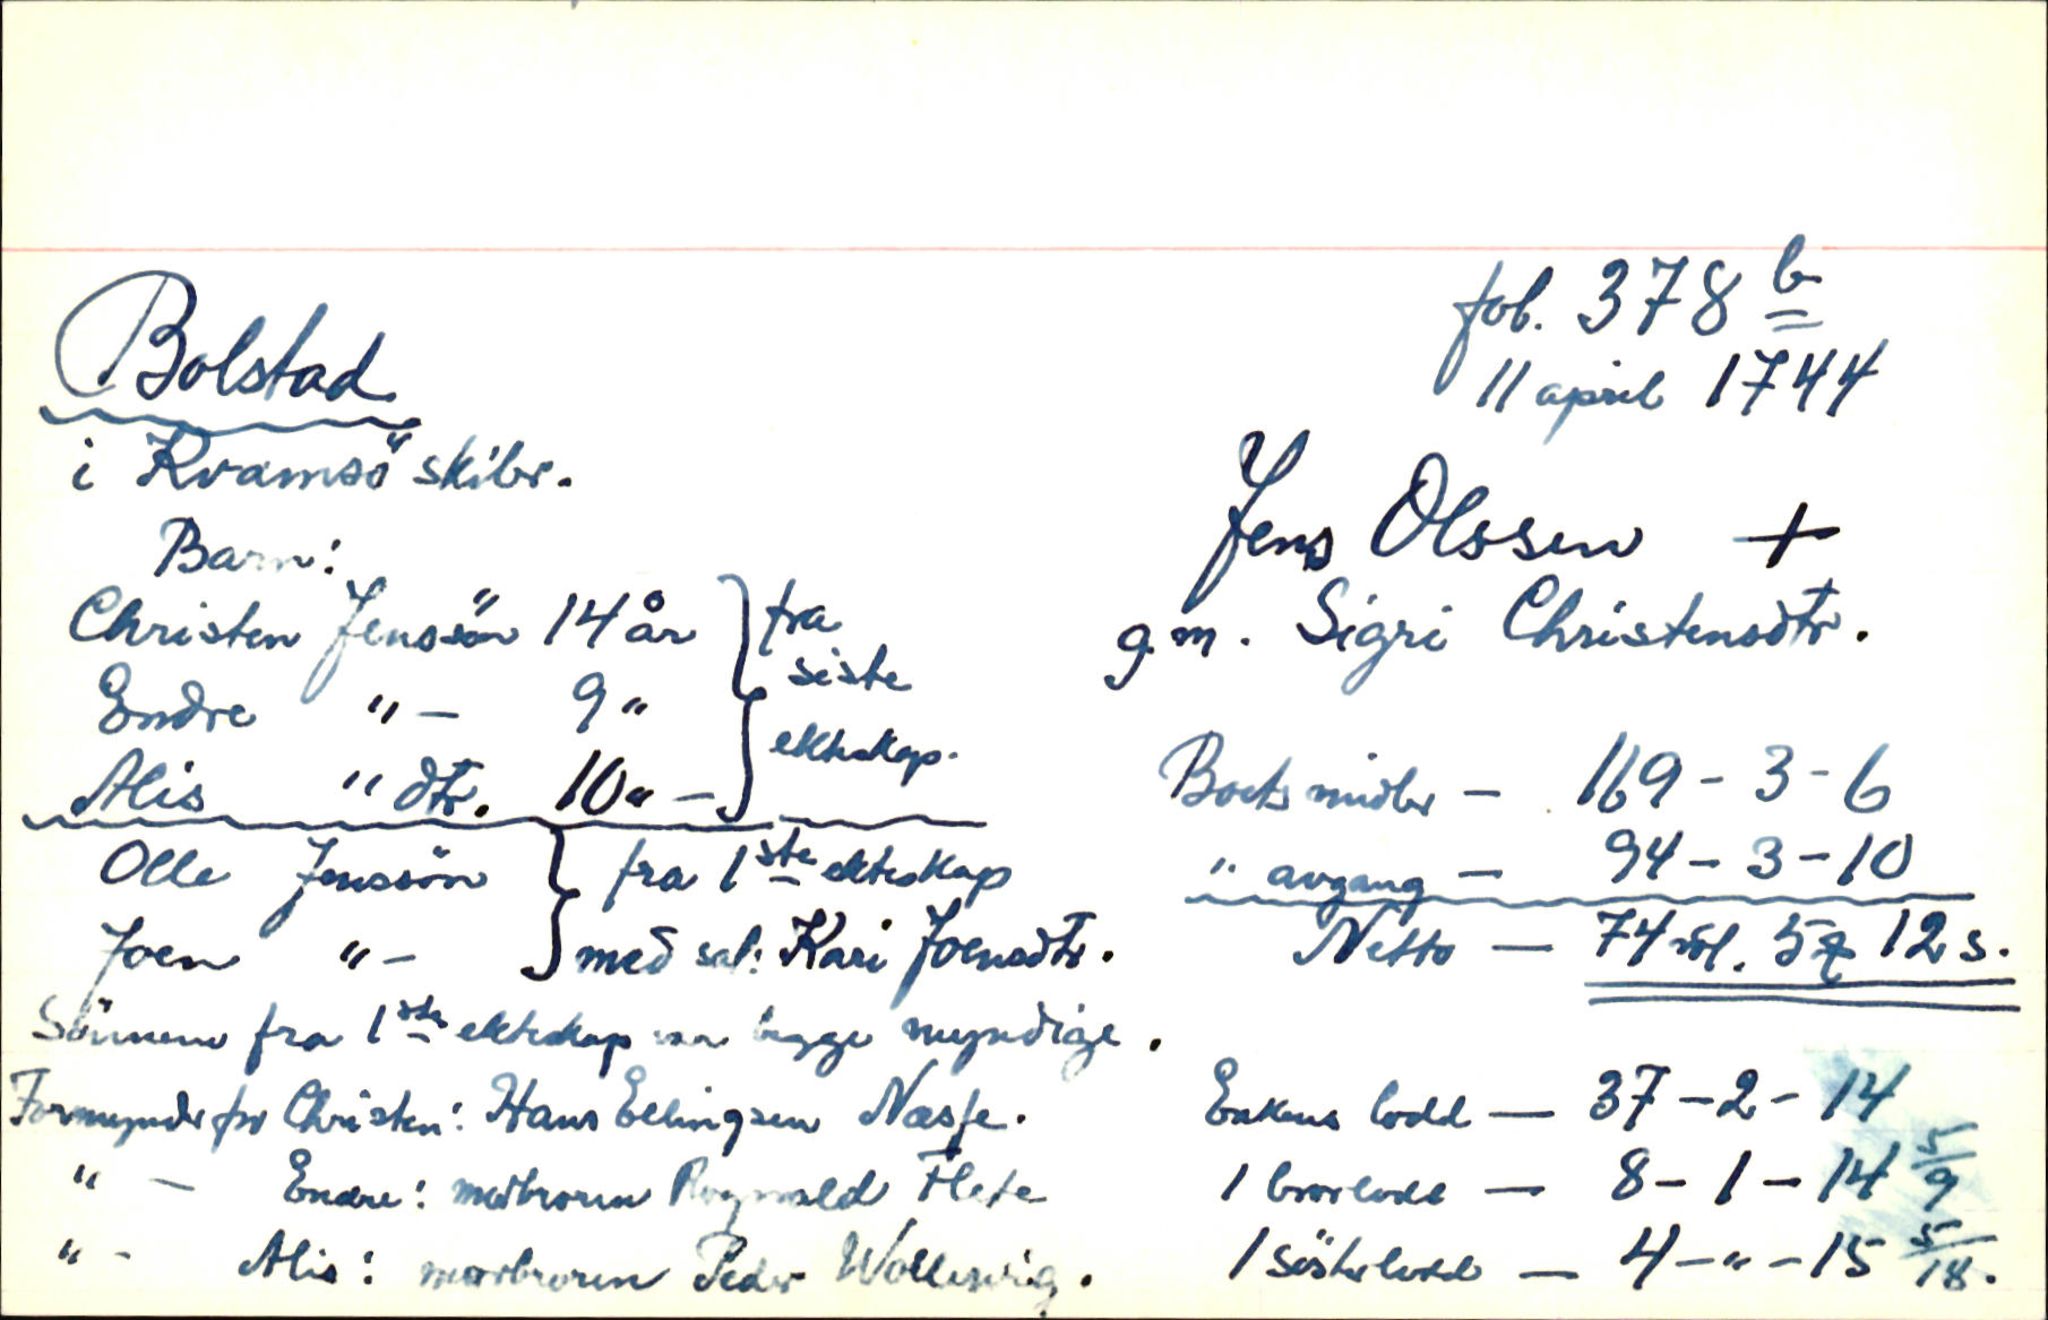 fol. 378 b
11 april 1744
Bolstad
i Kvamsö skibr.
Jens Olssen +
g.m. Sigri Christensdtr.
Barn:
Christen Jenssön 14 år } fra
Endre " — 9 " } siste
Alis " dtr. 10 " — } ekteskap.
Olle Jenssön } fra 1ste ekteskap
Joen " — } med sal: Kari Joensdtr.
Sönnene fra 1ste ekteskap var begge myndige.
Formynder for Christen: Hans Ellingsen Næsse.
" — Endre: morbroren Rognvald Flete
" — Alis: morbroren Peder Wolleswig.
Boets midler — 169 - 3 - 6
" avgang — 94 - 3 - 10
Netto — 74 rdl. 5 12 s.
Enkens lodd — 37 - 2 - 14
1 brorlodd — 8 - 1 - 14 5/9
1 söster lodd — 4 - " - 15 5/18.